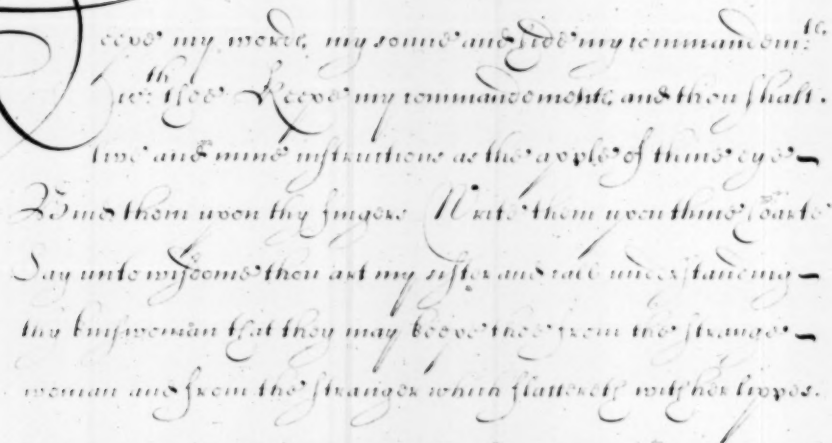 eepe my wordes my sonne and hide my commandem:tes
wth thee Keepe my commandements and thou shalt.
live and mine instructions as the apple of thine eye
Bind them upon thy fingers Write them upon thine hearte
Say unto wisdome thou art my sister and call understanding
thy kinswoman that they may keepe thee from the strange
woman and from the stranger which flattereth with her lippes.